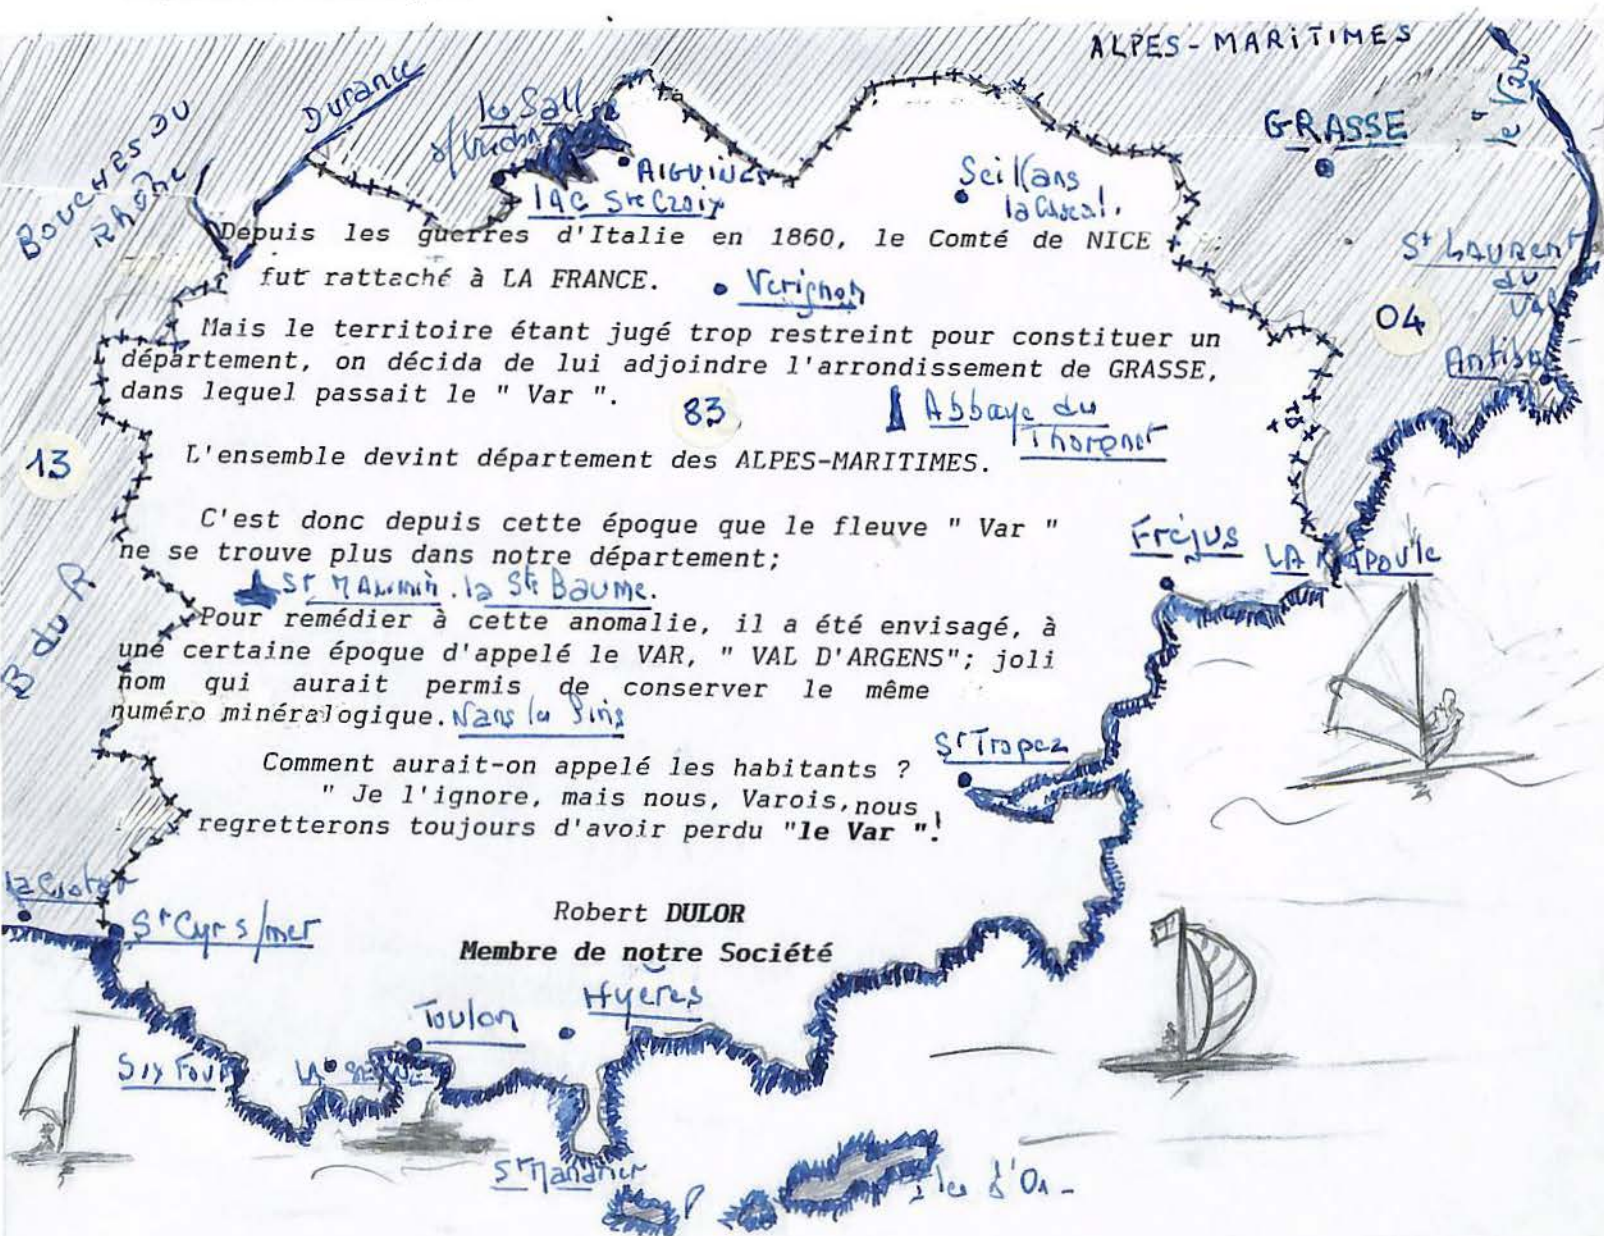 ALPES-MARITIMES
Durance
GRASSE
BOUCHES DU
Rhône
AIGUINES
Lac Ste Croix
Seillans
Depuis les guerres d'Italie en 1860, le Comté de NICE
fut rattaché à LA FRANCE.
St LAURENT
du
Verignon
04
Mais le territoire étant jugé trop restreint pour constituer un
département, on décida de lui adjoindre l'arrondissement de GRASSE,
dans lequel passait le " Var ".
83
Abbaye du
Thoronet
13
L'ensemble devint département des ALPES-MARITIMES.
C'est donc depuis cette époque que le fleuve " Var "
ne se trouve plus dans notre département;
Fréjus
LA NAPOULE
B du R
la Ste BAUME.
Pour remédier à cette anomalie, il a été envisagé, à
une certaine époque d'appelé le VAR, " VAL D'ARGENS"; joli
nom qui aurait permis de conserver le même
numéro minéralogique.
Nans les Pins
St Tropez
Comment aurait-on appelé les habitants ?
" Je l'ignore, mais nous, Varois, nous
regretterons toujours d'avoir perdu "le Var "!
la Ciotat
St Cyr s/mer
Robert DULOR
Membre de notre Société
Toulon
Hyères
Six Fours
LA SEYNE
St Mandrier
Iles d'Or